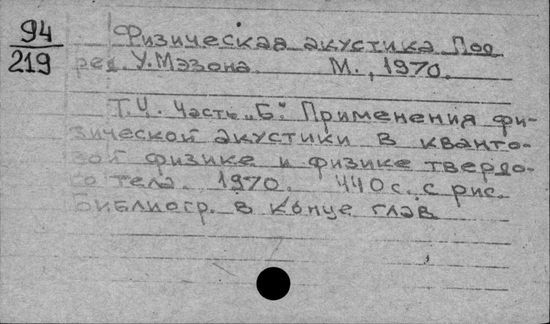 94
219
Физическая акустика Под
ред. У. Мэзона. М., 1970.
Т.4. Часть „Б". Применения фи-
зической акустики в кванто-
вой физике и физике твердо-
го тела. 1970. 440 с. с рис.
Библиогр. в конце глав